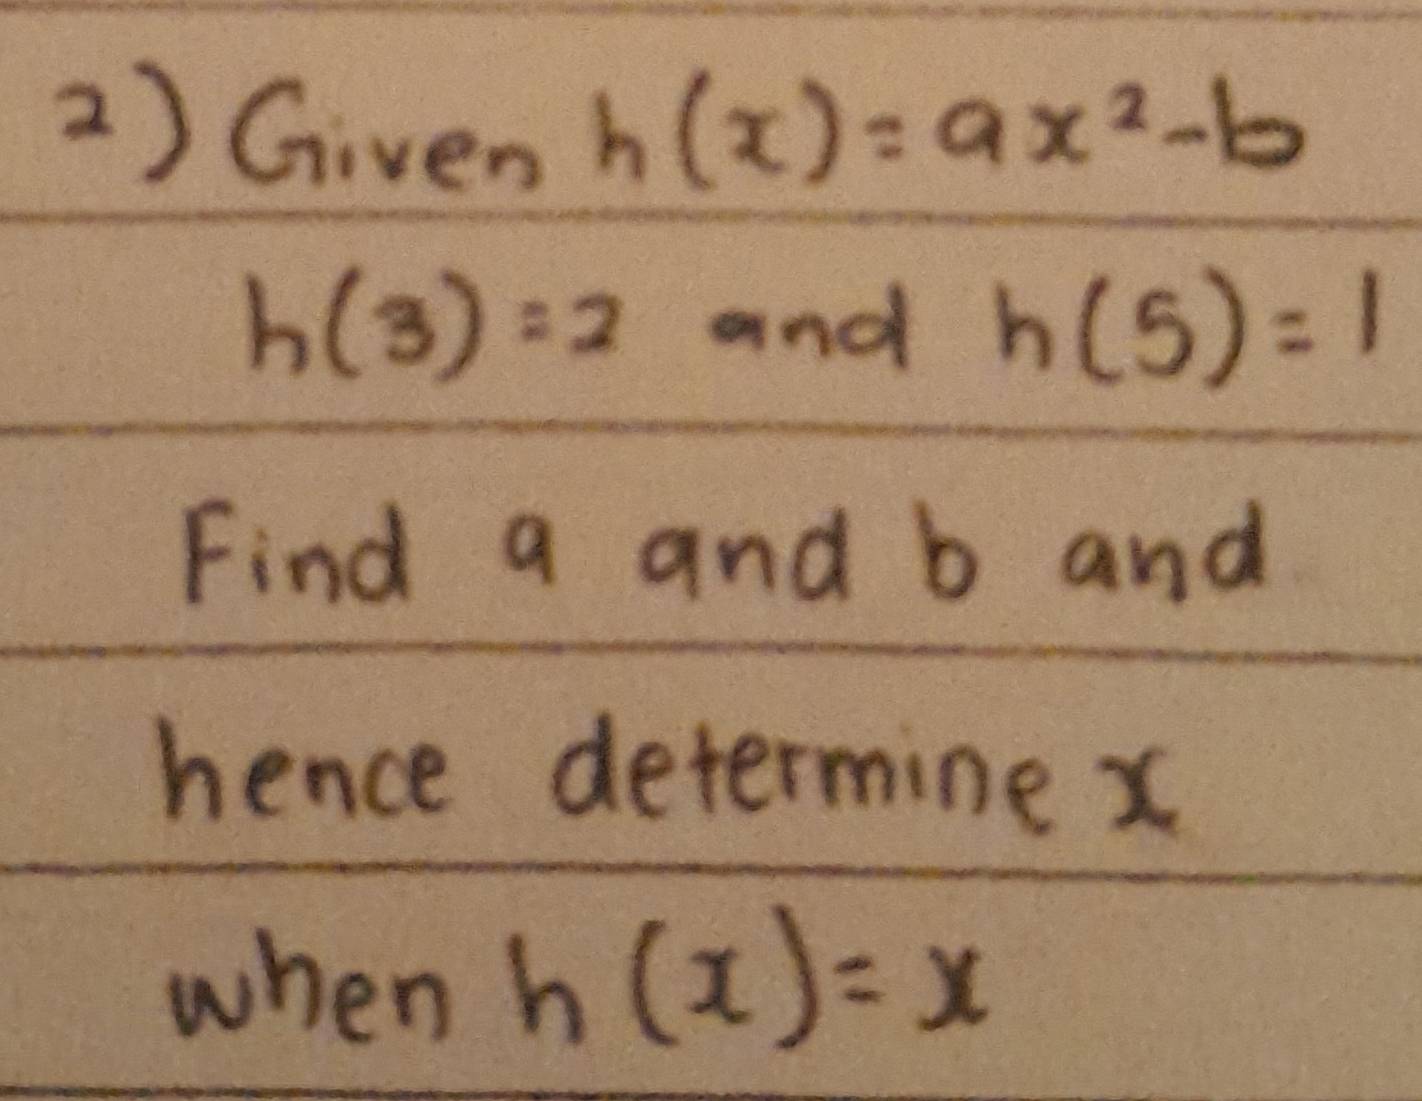 2) Given h(x) = ax² - b
h(3) = 2 and h(5) = 1
Find a and b and
hence determine x
when h(x) = x